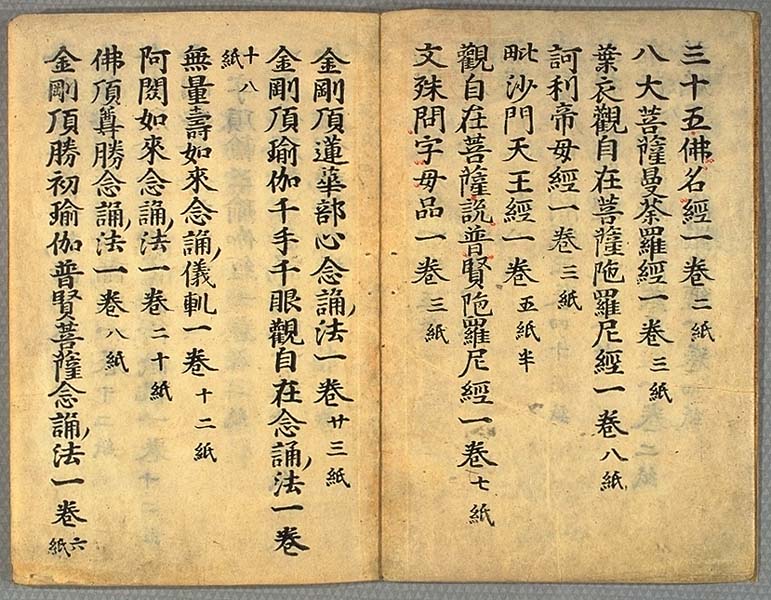 三十五佛名經一卷二紙
八大菩薩曼荼羅經一卷三紙
葉衣觀自在菩薩陁羅尼經一卷八紙
訶利帝母經一卷三紙
毗沙門天王經一卷五紙半
觀自在菩薩說普賢陁羅尼經一卷七紙
文殊問字母品一卷三紙
金剛頂蓮華部心念誦法一卷廿三紙
金剛頂瑜伽千手千眼觀自在念誦法一卷
十八紙
無量壽如來念誦儀軌一卷十二紙
阿閦如來念誦法一卷二十紙
佛頂尊勝念誦法一卷八紙
金剛頂勝初瑜伽普賢菩薩念誦法一卷六紙